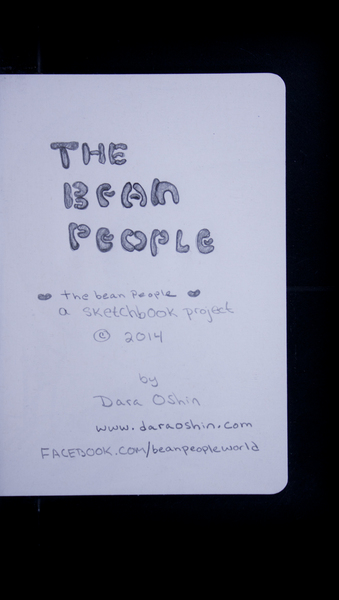 THE
BEAN
PEOPLE
the bean people
a sketchbook project
© 2014
by
Dara Oshin
www.daraoshin.com
FACEBOOK.COM/beanpeopleworld